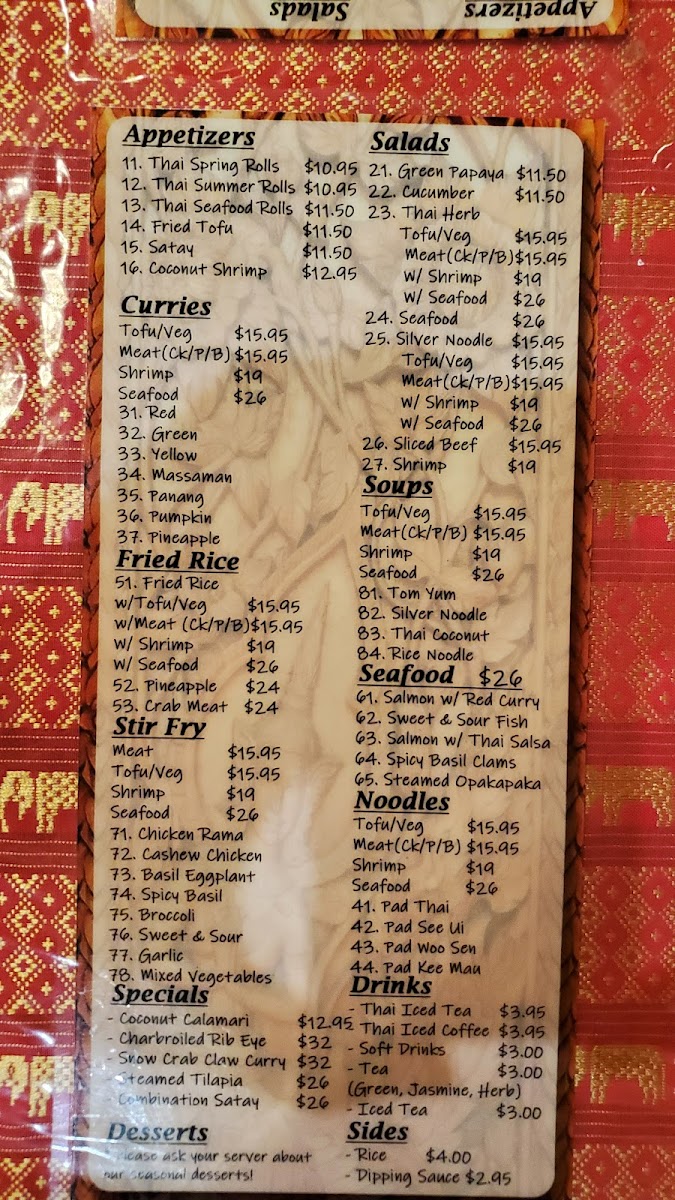 Salads
Appetizers
Appetizers
11. Thai Spring Rolls $10.95
12. Thai Summer Rolls $10.95
13. Thai Seafood Rolls $11.50
14. Fried Tofu $11.50
15. Satay $11.50
16. Coconut Shrimp $12.95
Curries
Tofu/Veg $15.95
Meat(Ck/P/B) $15.95
Shrimp $19
Seafood $26
31. Red
32. Green
33. Yellow
34. Massaman
35. Panang
36. Pumpkin
37. Pineapple
Fried Rice
51. Fried Rice
w/Tofu/Veg $15.95
w/Meat (Ck/P/B)$15.95
W/ Shrimp $19
W/ Seafood $26
52. Pineapple $24
53. Crab Meat $24
Stir Fry
Meat $15.95
Tofu/Veg $15.95
Shrimp $19
Seafood $26
71. Chicken Rama
72. Cashew Chicken
73. Basil Eggplant
74. Spicy Basil
75. Broccoli
76. Sweet & Sour
77. Garlic
78. Mixed Vegetables
Specials
- Coconut Calamari $12.95
- Charbroiled Rib Eye $32
- Snow Crab Claw Curry $32
- Steamed Tilapia $26
- Combination Satay $26
Desserts
Please ask your server about
our seasonal desserts!
Salads
21. Green Papaya $11.50
22. Cucumber $11.50
23. Thai Herb
Tofu/Veg $15.95
Meat(Ck/P/B)$15.95
W/ Shrimp $19
W/ Seafood $26
24. Seafood $26
25. Silver Noodle $15.95
Tofu/Veg $15.95
Meat(Ck/P/B)$15.95
W/ Shrimp $19
W/ Seafood $26
26. Sliced Beef $15.95
27. Shrimp $19
Soups
Tofu/Veg $15.95
Meat(Ck/P/B) $15.95
Shrimp $19
Seafood $26
81. Tom Yum
82. Silver Noodle
83. Thai Coconut
84. Rice Noodle
Seafood $26
61. Salmon w/ Red Curry
62. Sweet & Sour Fish
63. Salmon w/ Thai Salsa
64. Spicy Basil Clams
65. Steamed Opakapaka
Noodles
Tofu/Veg $15.95
Meat(Ck/P/B) $15.95
Shrimp $19
Seafood $26
41. Pad Thai
42. Pad See Ui
43. Pad Woo Sen
44. Pad Kee Mau
Drinks
- Thai Iced Tea $3.95
Thai Iced Coffee $3.95
- Soft Drinks $3.00
- Tea $3.00
(Green, Jasmine, Herb)
- Iced Tea $3.00
Sides
- Rice $4.00
- Dipping Sauce $2.95